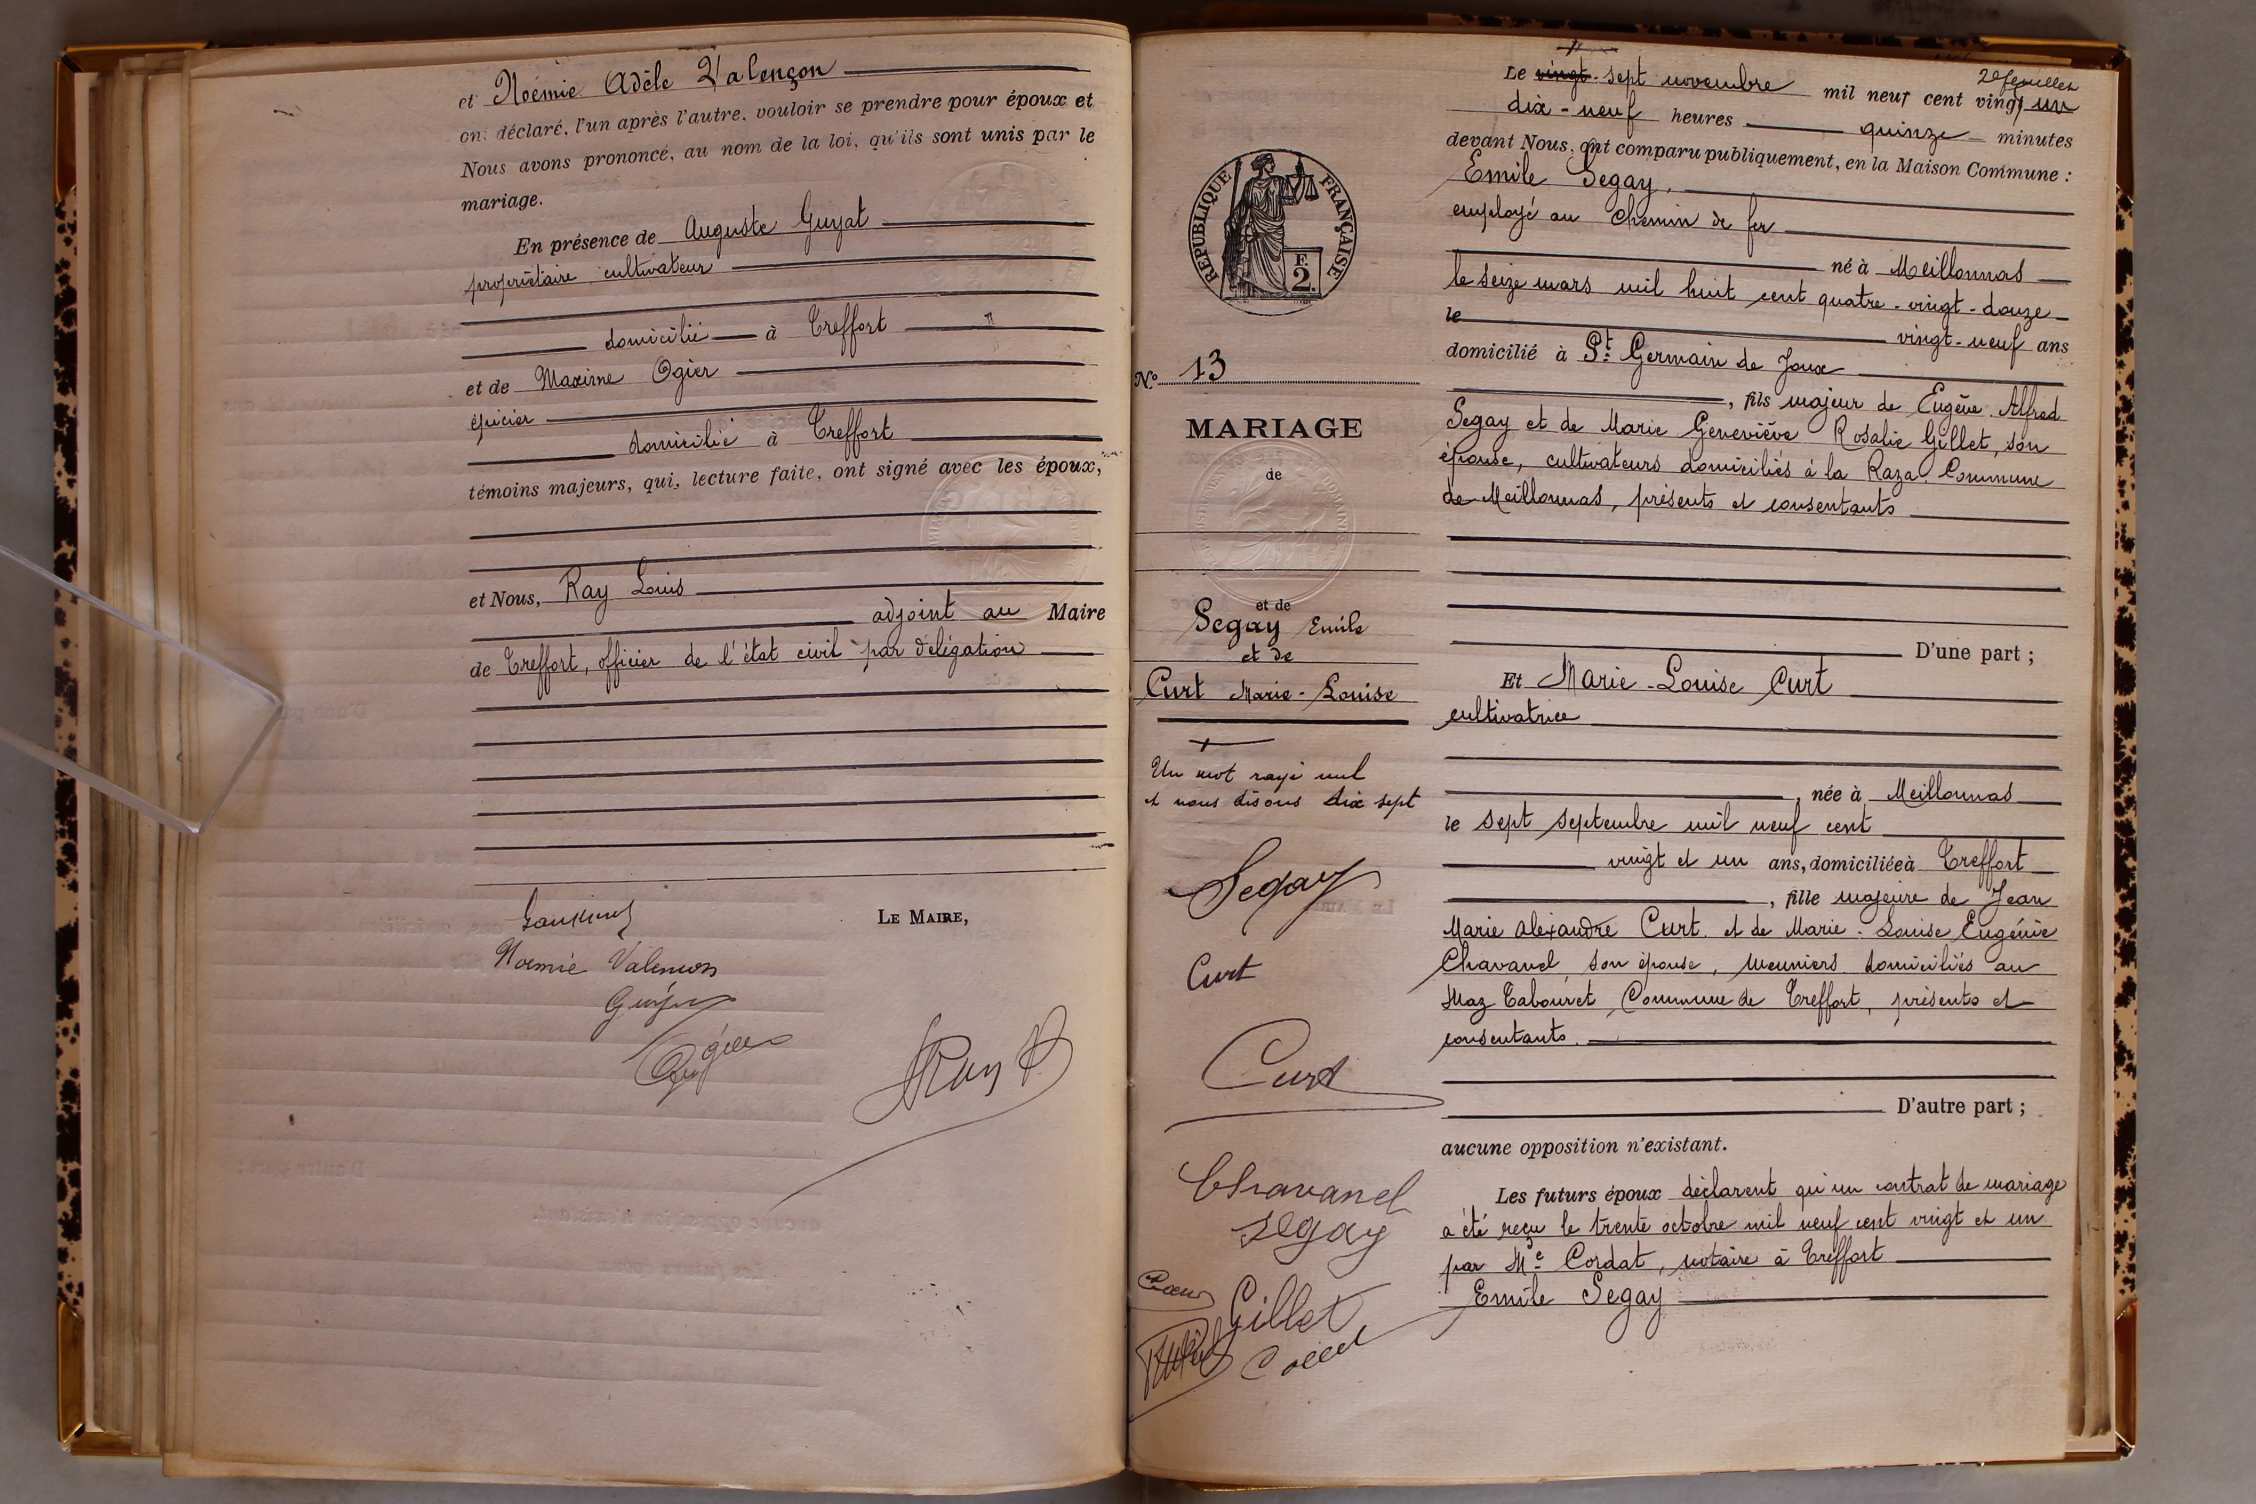 et Noémie Adèle Valençon
ont déclaré, l'un après l'autre, vouloir se prendre pour époux et
Nous avons prononcé, au nom de la loi, qu'ils sont unis par le
mariage.
En présence de Auguste Guyat
propriétaire cultivateur
domicilié à Treffort
et de Maxime Ogier
épicier
domicilié à Treffort
témoins majeurs, qui, lecture faite, ont signé avec les époux,
et Nous, Ray Louis
adjoint au Maire
de Treffort, officier de l'état civil par délégation
LE MAIRE,
Noemie Valencon
Ogier
RÉPUBLIQUE FRANÇAISE
F.
2.
No 13
MARIAGE
de
et de
Segay Emile
et de
Curt Marie-Louise
Un mot rayé nul
et nous disons dix sept
Segay
Curt
Curt
Chavanel
Segay
Gillet
2e feuillet
Le vingt-sept novembre mil neuf cent vingt un
dix-neuf heures quinze minutes
devant Nous, ont comparu publiquement, en la Maison Commune :
Emile Segay,
employé au chemin de fer
né à Meillonnas
le seize mars mil huit cent quatre-vingt-douze
le vingt-neuf ans
domicilié à St Germain de Joux
, fils majeur de Eugène Alfred
Segay et de Marie Geneviève Rosalie Gillet, son
épouse, cultivateurs domiciliés à la Raza Commune
de Meillonnas, présents et consentants
D'une part ;
Et Marie-Louise Curt
cultivatrice
, née à Meillonnas
le sept septembre mil neuf cent
vingt et un ans, domiciliée à Treffort
, fille majeure de Jean
Marie Alexandre Curt et de Marie-Louise Eugénie
Chavanel, son épouse, meuniers domiciliés au
Maz Tabouret, Commune de Treffort, présents et
consentants.
D'autre part ;
aucune opposition n'existant.
Les futurs époux déclarent qu'un contrat de mariage
a été reçu le trente octobre mil neuf cent vingt et un
par Me Cordat, notaire à Treffort
Emile Segay